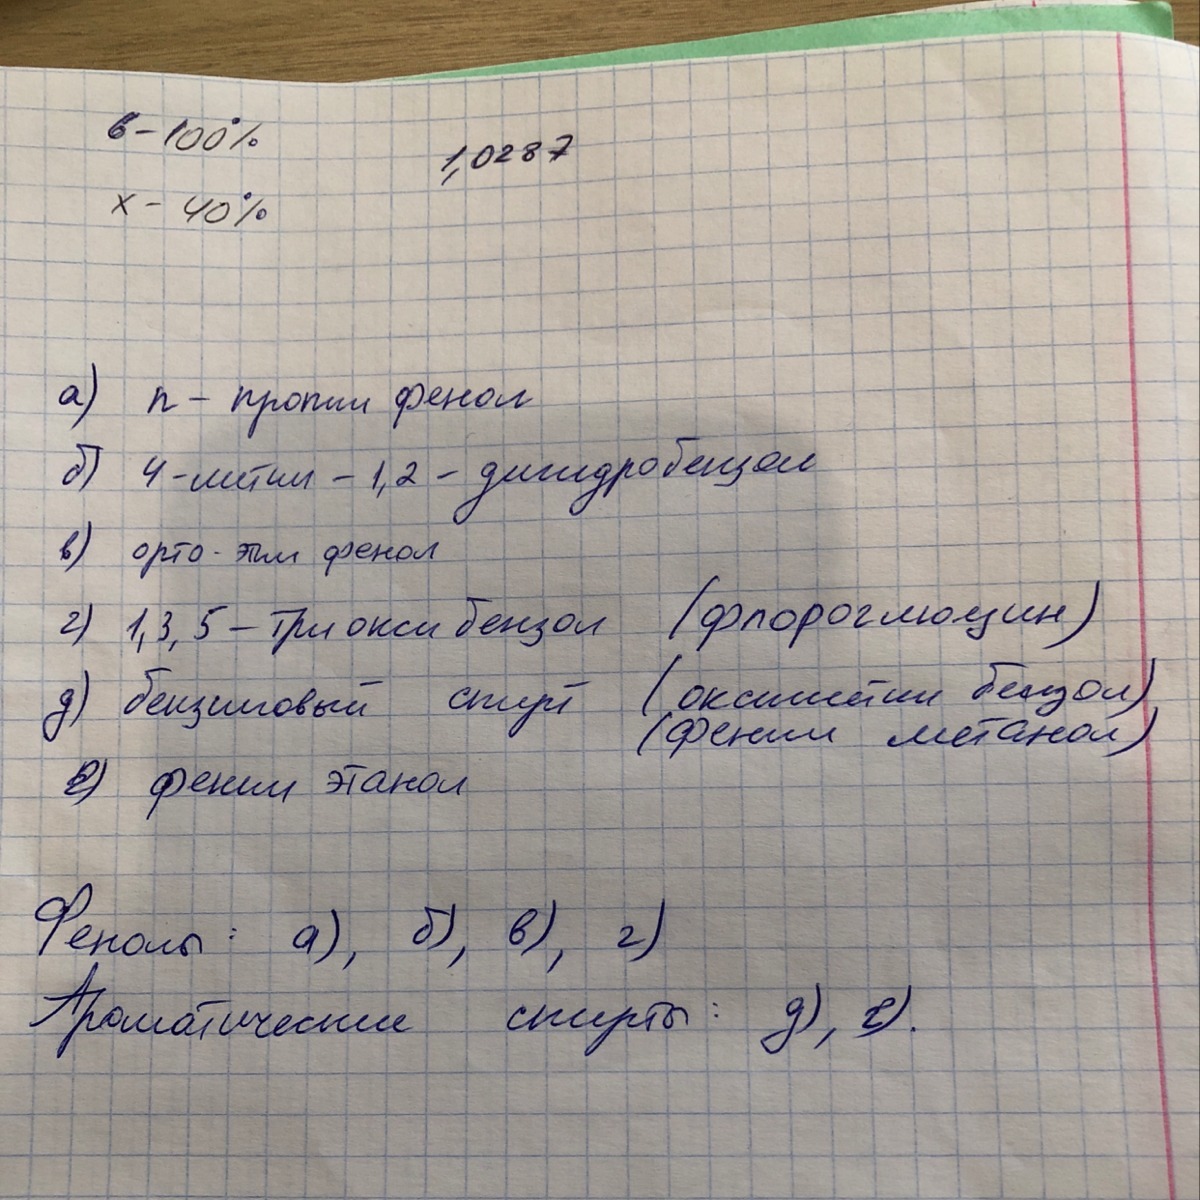 6 - 100%
1,0287
x - 40%
а) п - пропил фенол
б) 4-метил - 1,2 - дигидробензол
в) орто-этил фенол
г) 1,3,5 - триокси бензол (флороглюцин)
д) бензиловый спирт (оксиметил бензол)
(фенил метанол)
е) фенил этанол
Фенолы: а), б), в), г)
Ароматические спирты: д), е).